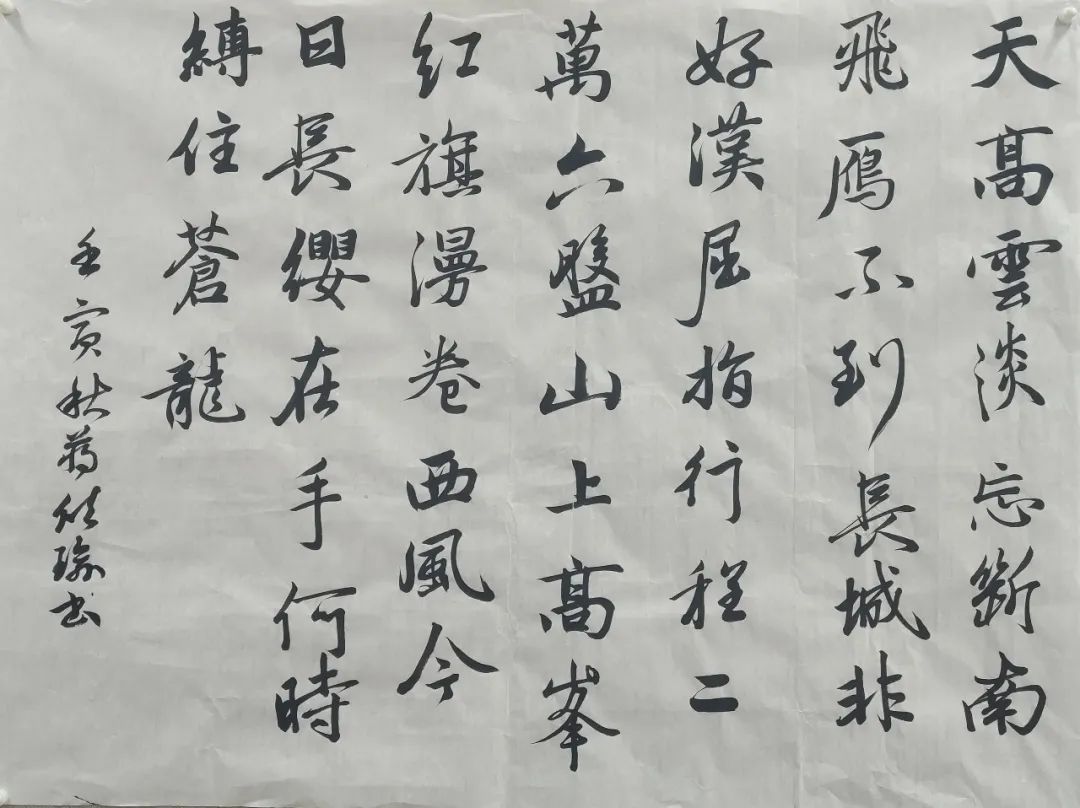 天高雲淡忘斷南
飛鴈不到長城非
好漢屈指行程二
萬六盤山上高峯
紅旗漫卷西風今
日長纓在手何時
縛住蒼龍
壬寅秋蔣瑜书